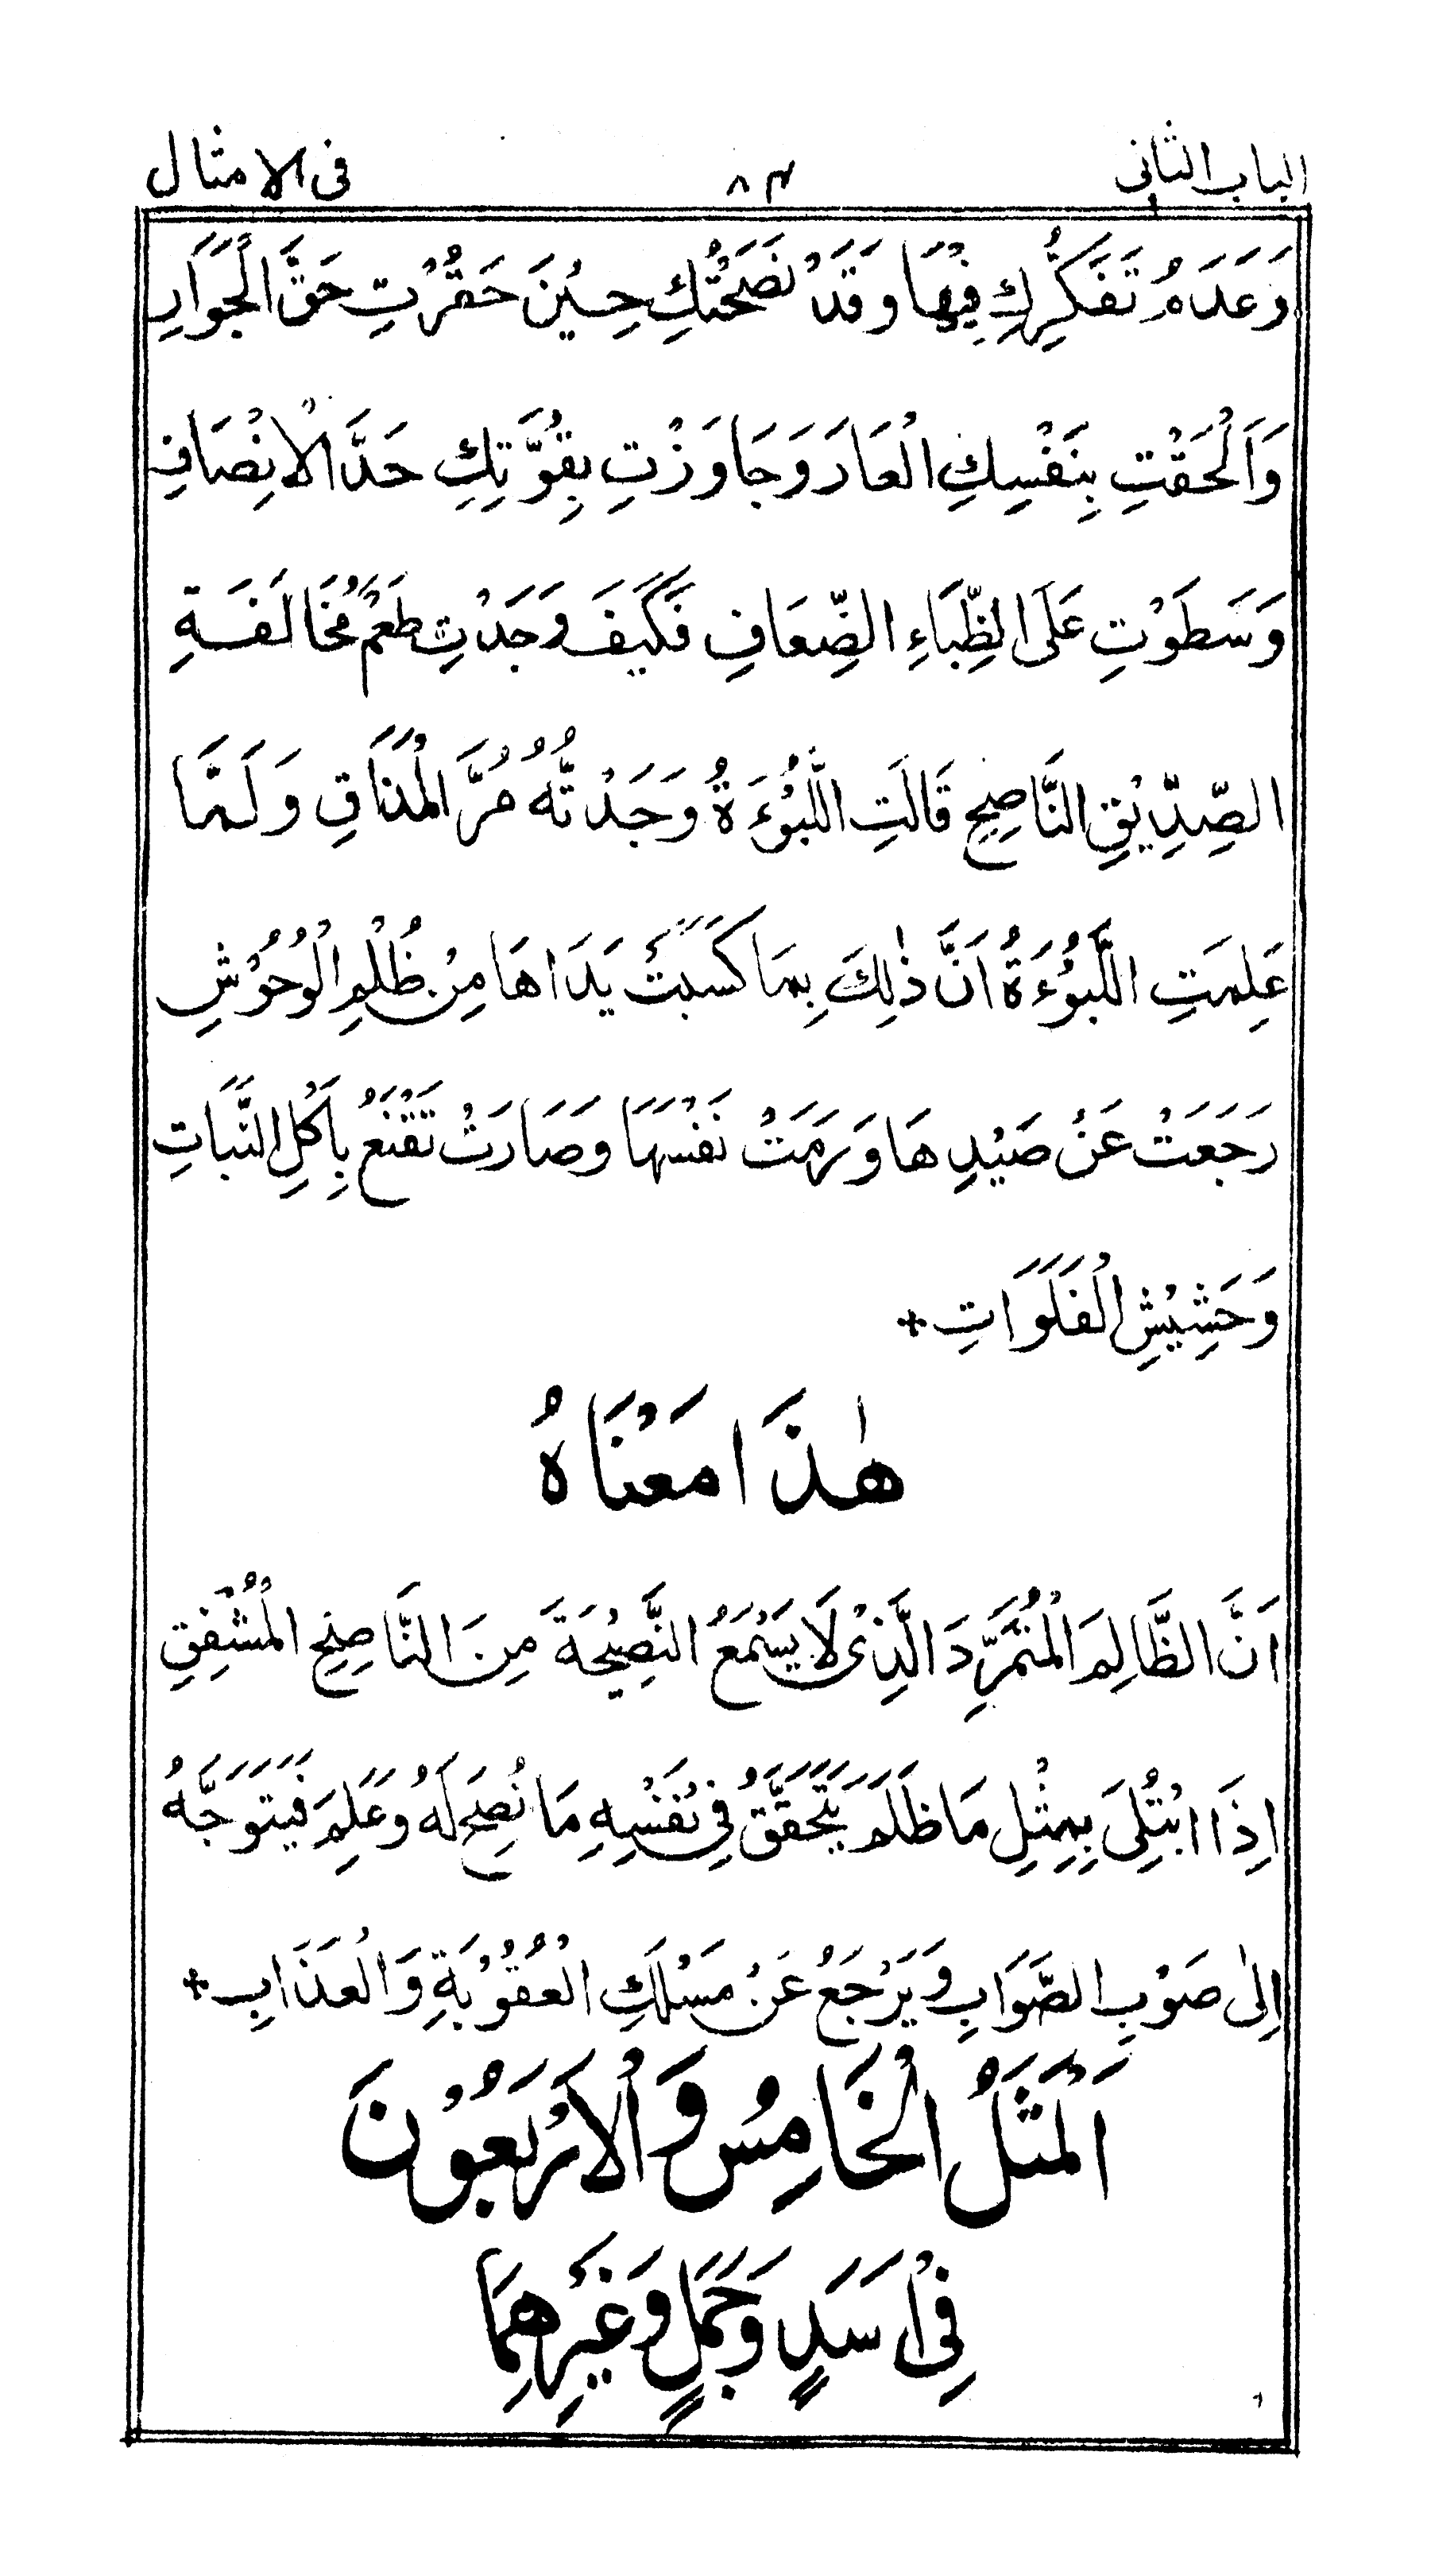 الباب الثانى ٨٤ فى الامثال
وَعَدَمُ تَفَكُّرِكِ فِيْهَا وَقَدْ نَصَحْتُكِ حِيْنَ حَقَّرْتِ حَقَّ الْجَوَارِ
وَاَلْحَقْتِ بِنَفْسِكِ الْعَارَ وَجَاوَزْتِ بِقُوَّتِكِ حَدَّ الْاِنْصَافِ
وَسَطَوْتِ عَلَى الظِّبَاءِ الضِّعَافِ فَكَيْفَ وَجَدْتِ طَعْمَ مُخَالَفَةِ
الصِّدِّيْقِ النَّاصِحِ قَالَتِ اللَّبُؤَةُ وَجَدْتُّهُ مُرَّ الْمَذَاقِ وَلَمَّا
عَلِمَتِ اللَّبُؤَةُ اَنَّ ذٰلِكَ بِمَا كَسَبَتْ يَدَاهَا مِنْ ظُلْمِ الْوُحُوْشِ
رَجَعَتْ عَنْ صَيْدِهَا وَرَمَتْ نَفْسَهَا وَصَارَتْ تَقْنَعُ بِاَكْلِ النَّبَاتِ
وَحَشِيْشِ الْفَلَوَاتِ +
هٰذَا مَعْنَاهُ
اَنَّ الظَّالِمَ الْمُتَمَرِّدَ الَّذِىْ لَا يَسْمَعُ النَّصِيْحَةَ مِنَ النَّاصِحِ الْمُشْفِقِ
اِذَا ابْتُلِىَ بِمِثْلِ مَا ظَلَمَ يَتَحَقَّقُ فِىْ نَفْسِهِ مَا نُصِحَ لَهُ وَعَلِمَ فَيَتَوَجَّهُ
اِلٰى صَوْبِ الصَّوَابِ وَيَرْجَعُ عَنْ مَسْلَكِ الْعُقُوْبَةِ وَالْعَذَابِ +
اَلْمَثَلُ الْخَامِسُ وَالْاَرْبَعُوْنَ
فِىْ اَسَدٍ وَجَمَلٍ وَغَيْرِهِمَا